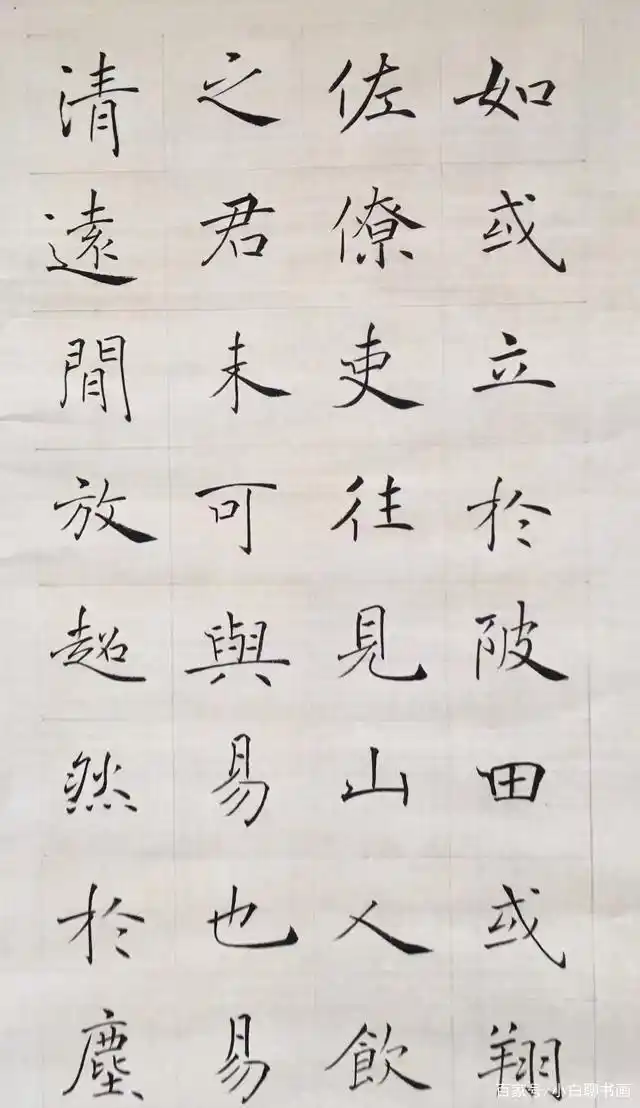 如或立於陂田或翔
佐僚吏往見山人飲
之君未可與易也易
清遠閒放超然於塵
百家号/小白聊书画